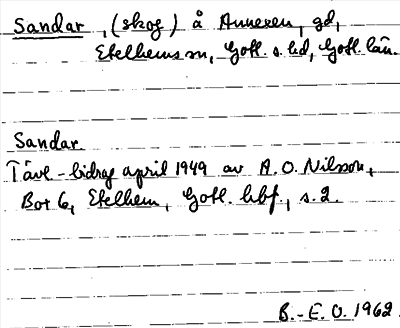 Sandar, (skog) å Annexen, gd,
Etelhems sn, Gotl. s. hd, Gotl. län.
Sandar
Tävl-bidrag april 1949 av A. O. Nilsson,
Box 6, Etelhem, Gotl. hbf., s. 2.
B.-E. O. 1962.